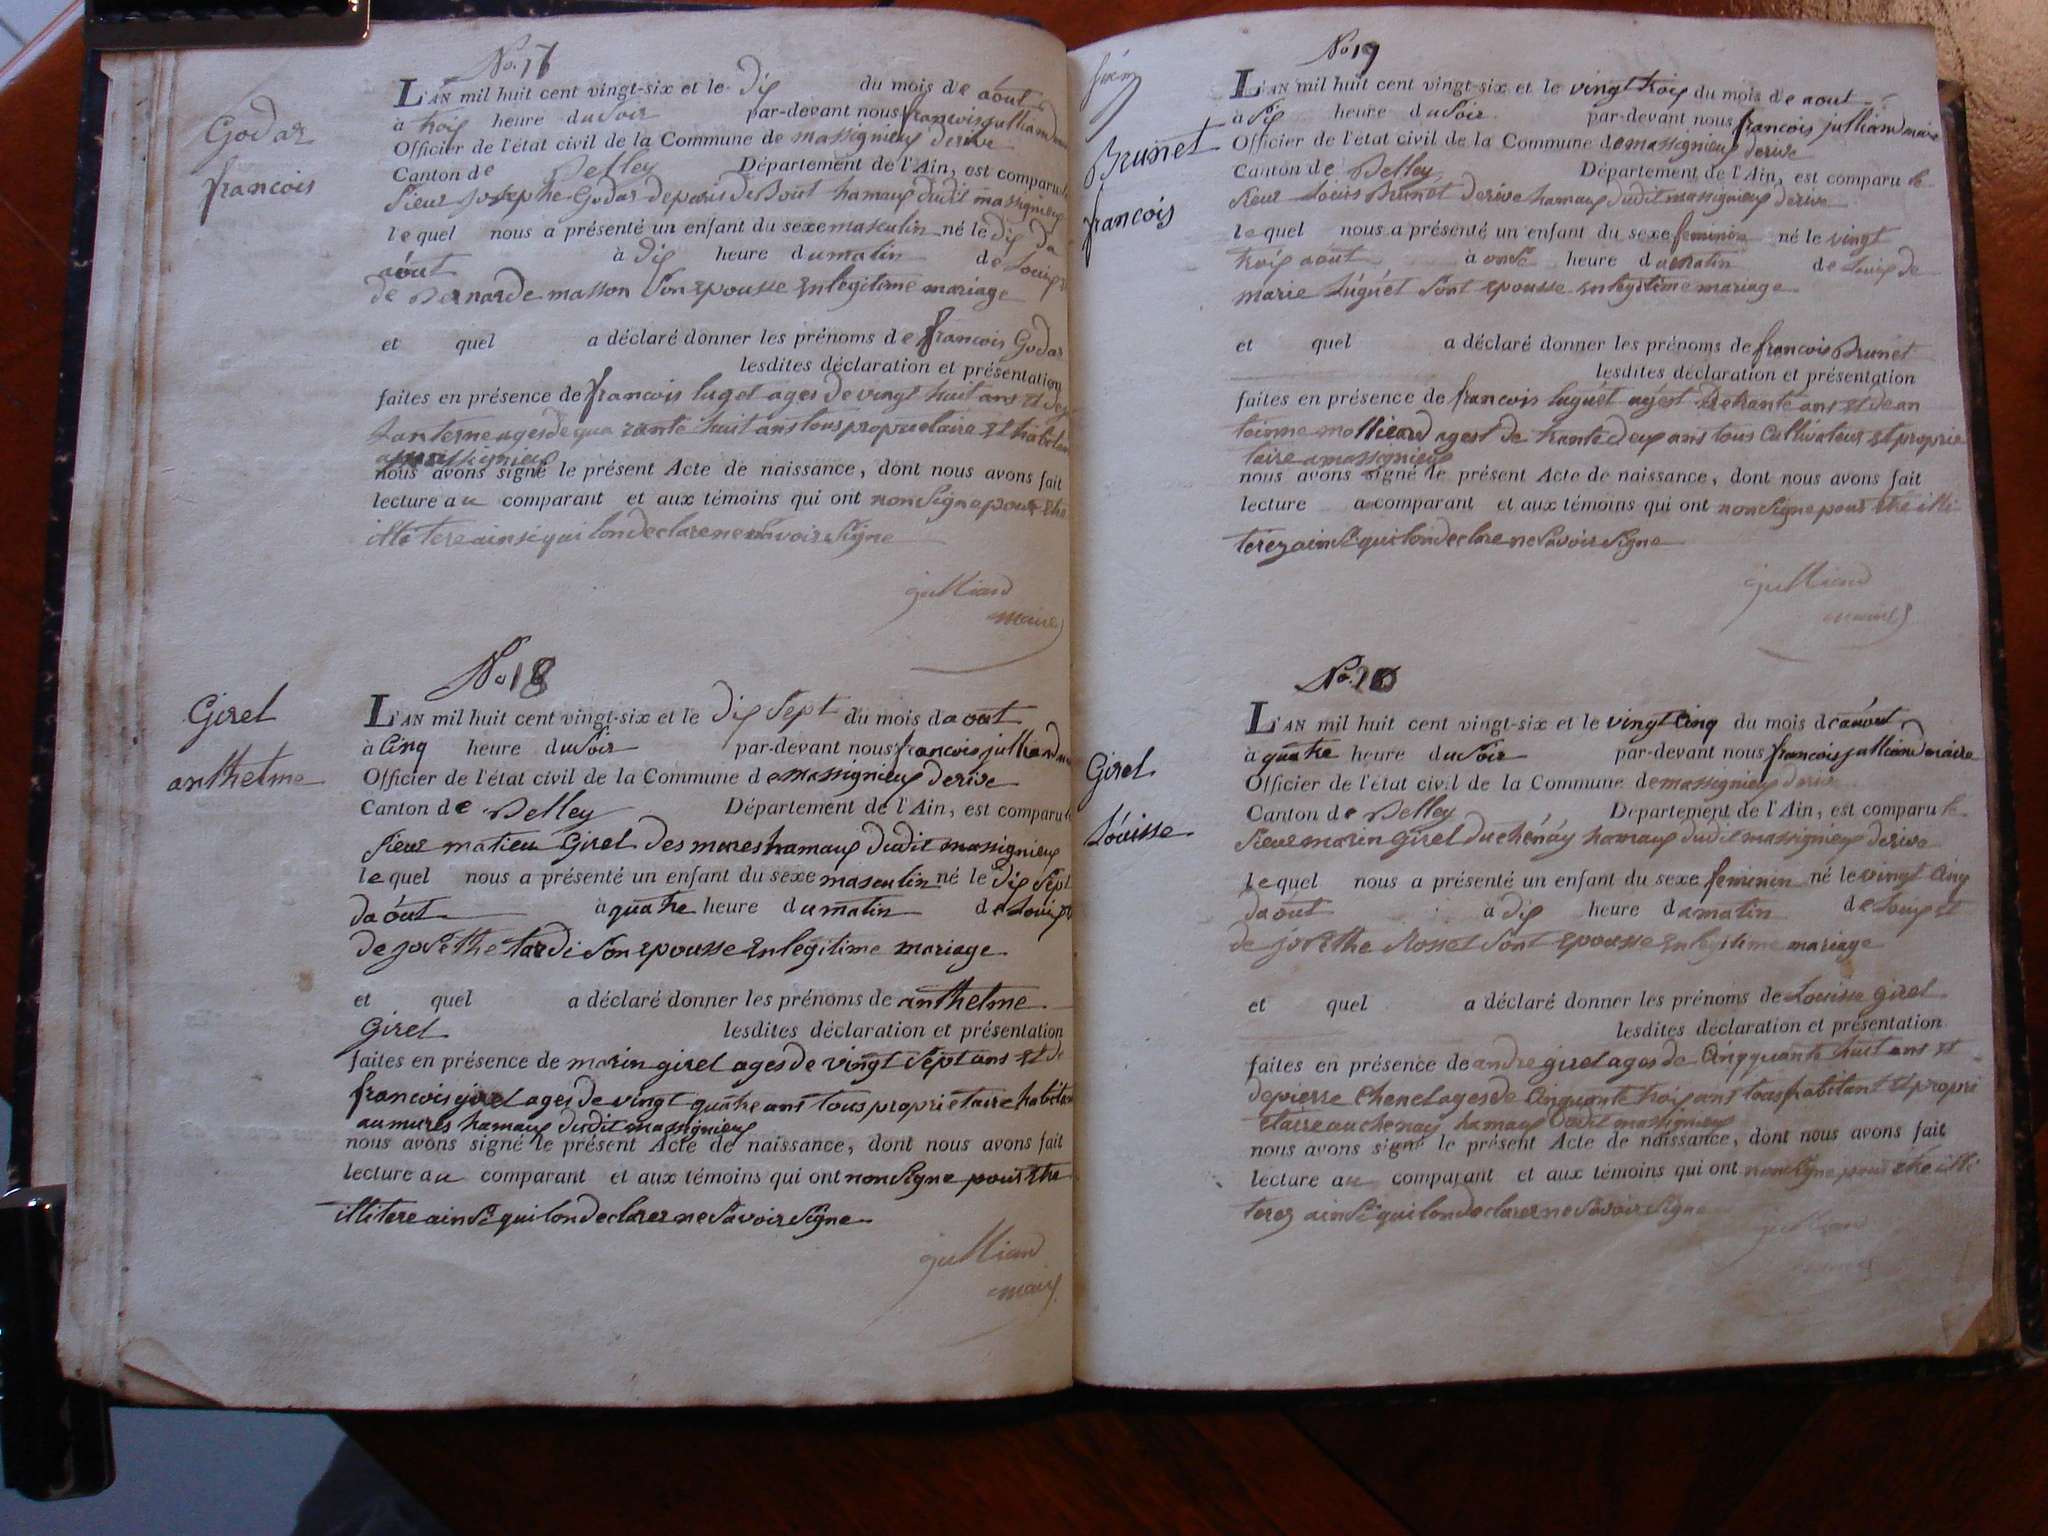 No. 17
Godar
francois
L'AN mil huit cent vingt-six et le dix du mois de aout
à trois heure du Soir par-devant nous francois julliand
Officier de l'état civil de la Commune de massignieux derive
Canton de Belley Département de l'Ain, est comparu le
Sieur josephe Godar deparis de Bout hamaux dudit massignieux
lequel nous a présenté un enfant du sexe masculin né le dix da
aóut à dix heure du matin de Louix et
de Bernarde masson Son epousse en legitime mariage
et quel a déclaré donner les prénoms de francois Godar
lesdites déclaration et présentation
faites en présence de francois luget ages de vingt huit ans et de
janterne ages de quarante huit ans tous proprietaire et habitan
a massignieux
nous avons signé le présent Acte de naissance, dont nous avons fait
lecture au comparant et aux témoins qui ont non Signe pour etre
illitere ainsi qui lon declare ne savoir Signe
julliand
maire
No. 18
Girel
anthelme
L'AN mil huit cent vingt-six et le dix Sept du mois daout
à Cinq heure du Soir par-devant nous francois julliand
Officier de l'état civil de la Commune de massignieux derive
Canton de Belley Département de l'Ain, est comparu le
Sieur matieu Girel des mures hamaux dudit massignieux
lequel nous a présenté un enfant du sexe masculin né le dix Sept
daóut à quatre heure du matin de Louix et
de josethe tardi Son epousse en legitime mariage
et quel a déclaré donner les prénoms de anthelme
Girel lesdites déclaration et présentation
faites en présence de marin girel ages de vingt Sept ans et de
francois girel ages de vingt quatre ans tous proprietaire habitan
au mures hamaux dudit massignieux
nous avons signé le présent Acte de naissance, dont nous avons fait
lecture au comparant et aux témoins qui ont non Signe pour etre
illitere ainSi qui lon declarer ne Savoir Signe
julliand
maire
No 19
Brunet
francois
L'AN mil huit cent vingt-six et le vingt trois du mois de aout
à Six heure du Soir par-devant nous francois julliand maire
Officier de l'état civil de la Commune de massignieux derive
Canton de Belley Département de l'Ain, est comparu le
Sieur Louis Brunet derive hamaux dudit massignieux derive
lequel nous a présenté un enfant du sexe feminin né le vingt
trois aóut à onSe heure du matin de Louix de
marie Lúguét Sont epousse en legitime mariage
et quel a déclaré donner les prénoms de francois Brunet
lesdites déclaration et présentation
faites en présence de francois luguét agest de trante ans et de an
toinne molliard agest de trante deux ans tous Cultivateur et proprie
taire a massignieux
nous avons signé le présent Acte de naissance, dont nous avons fait
lecture a comparant et aux témoins qui ont non Signe pour etre illi
terez ainSi qui lon declare ne Savoir Signe
julliand
maire
No. 20
Girel
Lóuisse
L'AN mil huit cent vingt-six et le vingt Cinq du mois de aóut
à quatre heure du Soir par-devant nous francois julliand maire
Officier de l'état civil de la Commune de massignieux derive
Canton de Belley Département de l'Ain, est comparu le
Sieur marin Girel du chénáy hamaux dudit massignieux derive
lequel nous a présenté un enfant du sexe feminin né le vingt Cinq
daóut à dix heure du matin de Louix et
de josethe Rosset Sont epousse en legitime mariage
et quel a déclaré donner les prénoms de Louisse girel
lesdites déclaration et présentation
faites en présence de andre girel ages de Cinqquante huit ans et
de pierre Chenel ages de Cinquante trois ans tous habitant et propri
etaire au chenay hamaux dudit massignieux
nous avons signé le présent Acte de naissance, dont nous avons fait
lecture au comparant et aux témoins qui ont non Signe pour etre illi
terez ainSi qui lon declarer ne Savoir Signe
julliand